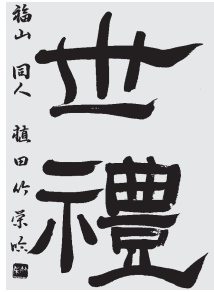 世禮
福山 同人 植田竹栄臨